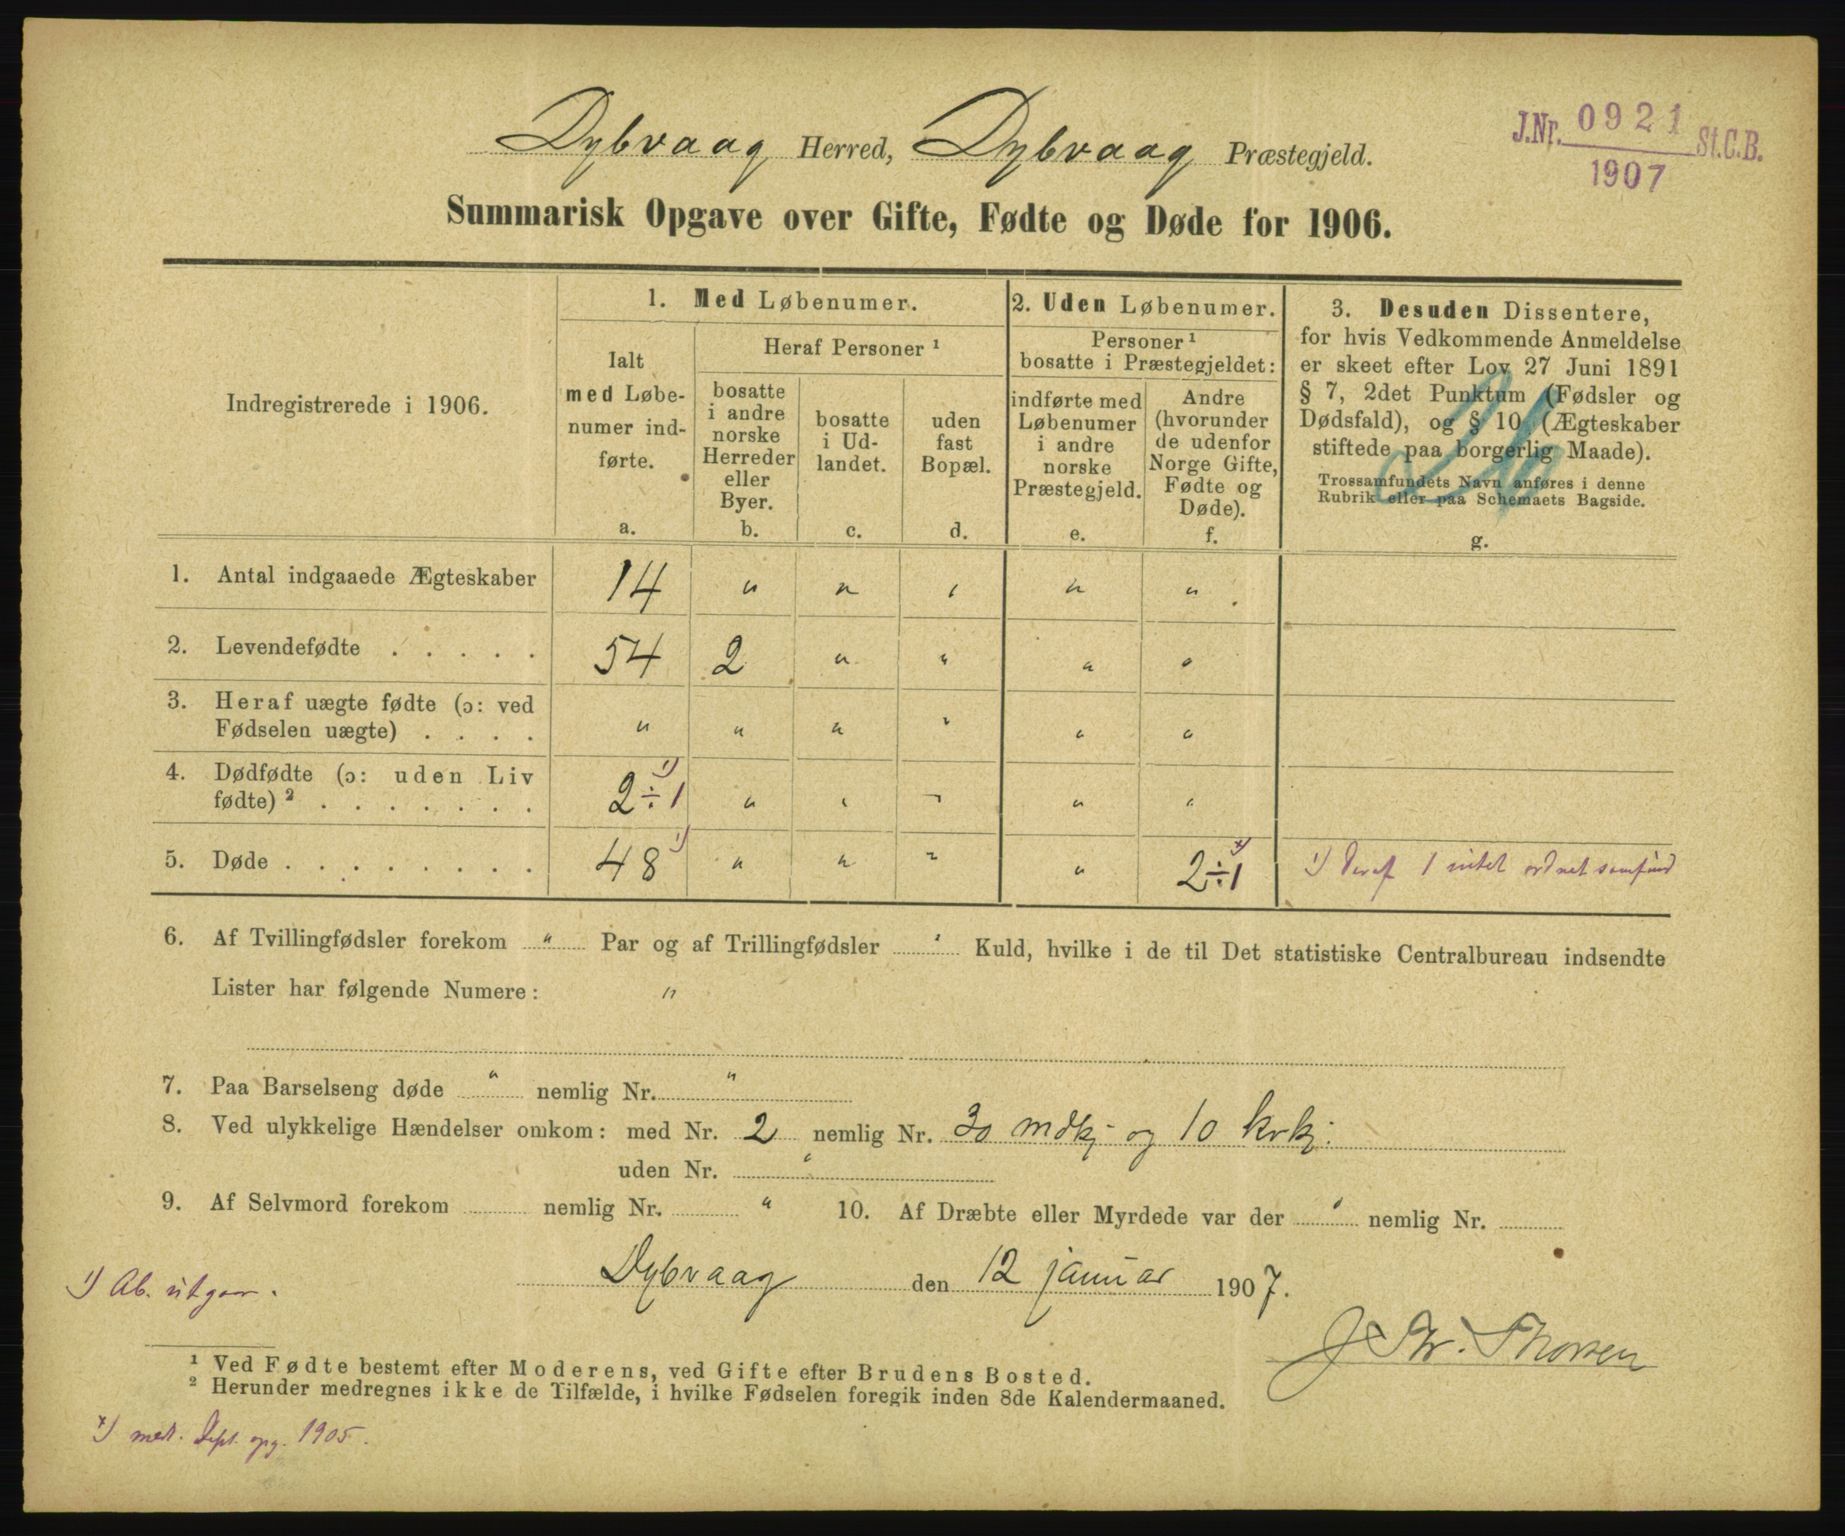 Dybvaag Herred, Dybvaag Præstegjeld.
J.Nr. 0921 St.C.B.
1907
Summarisk Opgave over Gifte, Fødte og Døde for 1906.
Indregistrerede i 1906.
1. Med Løbenumer.
Ialt
med Løbe-
numer ind-
førte.
a.
Heraf Personer ¹
bosatte
i andre
norske
Herreder
eller
Byer.
b.
bosatte
i Ud-
landet.
c.
uden
fast
Bopæl.
d.
2. Uden Løbenumer.
Personer ¹
bosatte i Præstegjeldet:
indførte med
Løbenumer
i andre
norske
Præstegjeld.
e.
Andre
(hvorunder
de udenfor
Norge Gifte,
Fødte og
Døde).
f.
3. Desuden Dissentere,
for hvis Vedkommende Anmeldelse
er skeet efter Lov 27 Juni 1891
§ 7, 2det Punktum (Fødsler og
Dødsfald), og § 10 (Ægteskaber
stiftede paa borgerlig Maade).
Trossamfundets Navn anføres i denne
Rubrik eller paa Schemaets Bagside.
g.
1. Antal indgaaede Ægteskaber 14 " " " " "
2. Levendefødte . . . . . 54 2 " " " "
3. Heraf uægte fødte (ɔ: ved
Fødselen uægte) . . . . " " " " " "
4. Dødfødte (ɔ: uden Liv
fødte) ² . . . . . . . 2÷1 ¹) " " " " "
5. Døde . . . . . . . . 48 ¹) " " " " 2÷1 ˣ) ¹) Deraf 1 intet ordnet samfund
6. Af Tvillingfødsler forekom " Par og af Trillingfødsler " Kuld, hvilke i de til Det statistiske Centralbureau indsendte
Lister har følgende Numere: "
7. Paa Barselseng døde " nemlig Nr. "
8. Ved ulykkelige Hændelser omkom: med Nr. 2 nemlig Nr. 30 mdkj og 10 kvkj.
uden Nr. "
9. Af Selvmord forekom nemlig Nr. " 10. Af Dræbte eller Myrdede var der " nemlig Nr.
Dybvaag den 12 januar 1907.
¹) Ab. utgaar.
J Chr. Thorsen
¹ Ved Fødte bestemt efter Moderens, ved Gifte efter Brudens Bosted.
² Herunder medregnes ikke de Tilfælde, i hvilke Fødselen foregik inden 8de Kalendermaaned.
ˣ) med. Dept. opg. 1905.